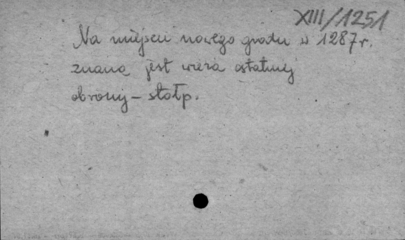 XIII/1251
Na miejscu nowego grodu w 1287 r.
znana jest wieża ostatniej
obrony - stołp.